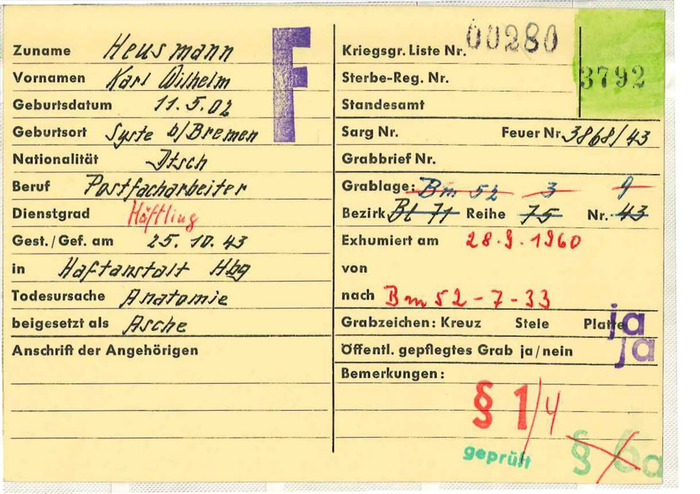 Zuname Heusmann
Vornamen Karl Wilhelm
Geburtsdatum 11.5.02
Geburtsort Syke b/Bremen
Nationalität Dtsch
Beruf Postfacharbeiter
Dienstgrad Häftling
Gest./Gef. am 25. 10. 43
in Haftanstalt Hbg
Todesursache Anatomie
beigesetzt als Asche
Anschrift der Angehörigen
F
Kriegsgr. Liste Nr. 00280
3792
Sterbe-Reg. Nr.
Standesamt
Sarg Nr. Feuer Nr. 3868/43
Grabbrief Nr.
Grablage: Bm 52 3 9
Bezirk Bl 71 Reihe 75 Nr. 43
Exhumiert am 28.9.1960
von
nach Bm 52-7-33
Grabzeichen: Kreuz Stele Platte ja
Öffentl. gepflegtes Grab ja/nein ja
Bemerkungen:
§ 1/4
geprüft § 6a